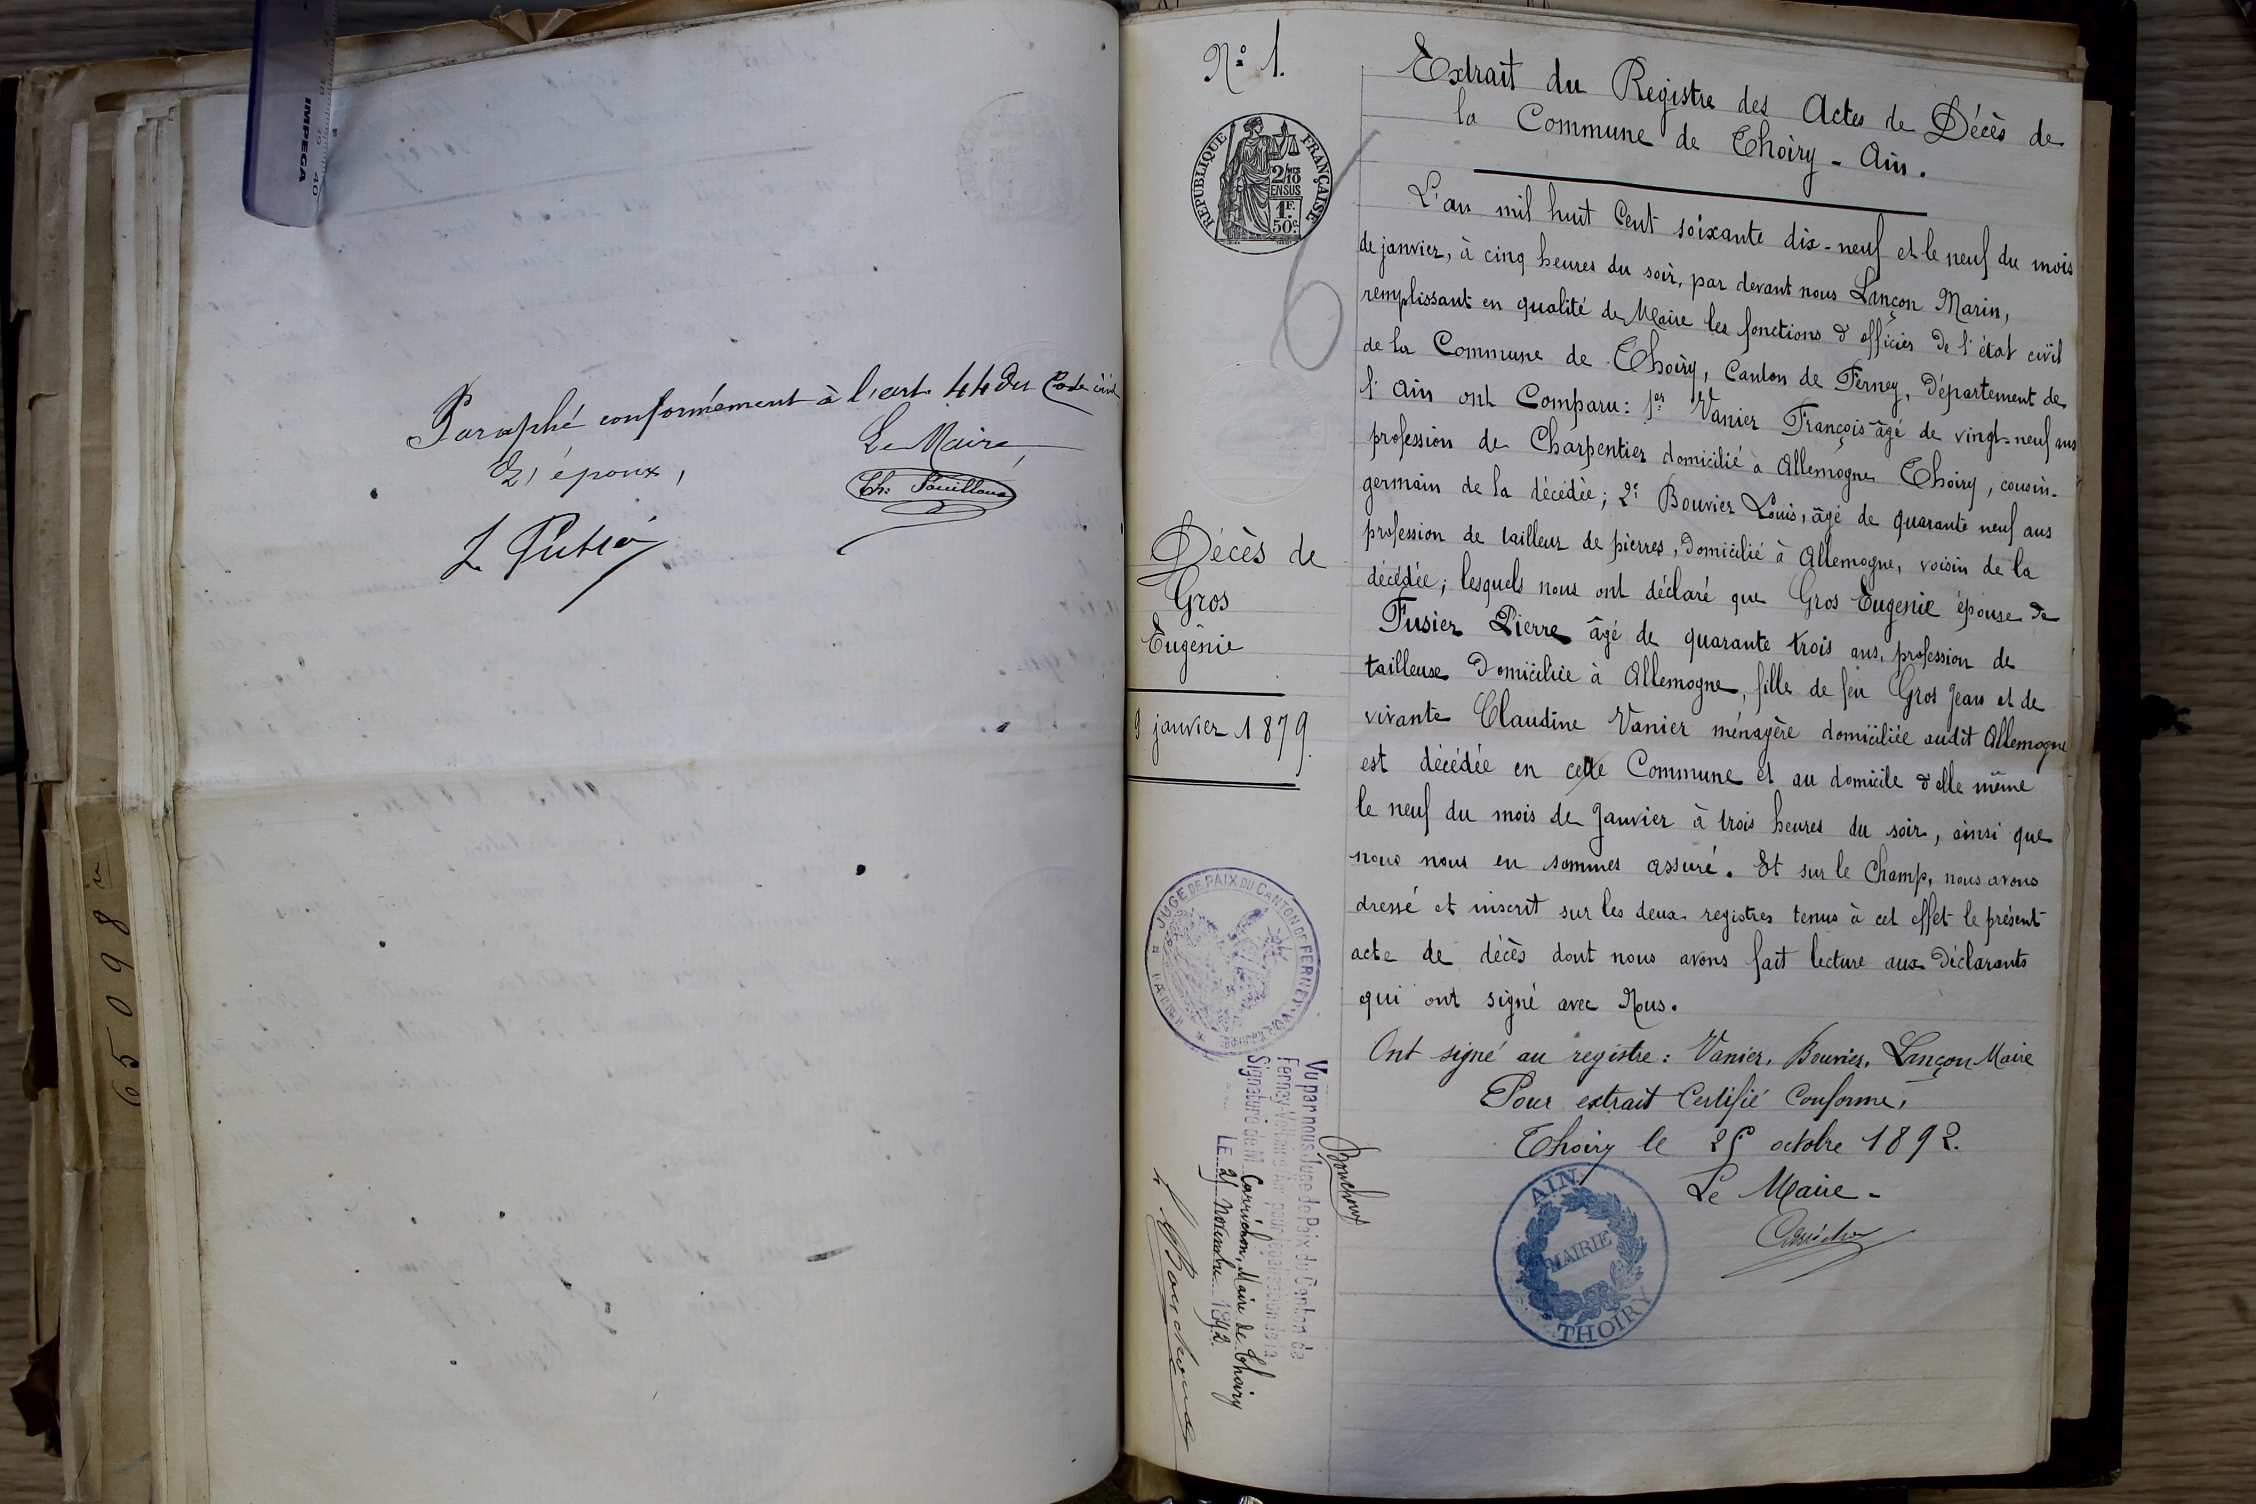 IMPEGA
40
Paraphé conformément à l'art. 44 du Code civil
L'époux,
Le Maire,
65098
N° 1.
REPUBLIQUE FRANÇAISE
2/10
EN SUS
1F.
50c
Extrait du Registre des Actes de Décès de
la Commune de Thoiry - Ain.
L'an mil huit Cent soixante dix-neuf et le neuf du mois
de janvier, à cinq heures du soir, par devant nous Lançon Marin,
remplissant en qualité de Maire les fonctions d'officier de l'état civil
de la Commune de Thoiry, Canton de Ferney, Département de
l'Ain ont Comparu: 1er Vanier François âgé de vingt-neuf ans
profession de Charpentier domicilié à Allemogne Thoiry, cousin-
germain de la décédée; 2e Bouvier Louis, âgé de quarante neuf ans
profession de tailleur de pierres, Domicilié à Allemogne, voisin de la
décédée; lesquels nous ont déclaré que Gros Eugénie épouse de
Fusier Pierre âgé de quarante trois ans, profession de
tailleuse Domiciliée à Allemogne, fille de feu Gros Jean et de
vivante Claudine Vanier ménagère domiciliée audit Allemogne
est décédée en cette Commune et au domicile d'elle même
le neuf du mois de Janvier à trois heures du soir, ainsi que
nous nous en sommes assuré. Et sur le Champ, nous avons
dressé et inscrit sur les deux registres tenus à cet effet le présent
acte de décès dont nous avons fait lecture aux Déclarants
qui ont signé avec Nous.
Ont signé au registre: Vanier, Bouvier, Lançon Maire
Pour extrait Certifié Conforme,
Thoiry le 25 octobre 1892.
Le Maire -
AIN
MAIRIE
THOIRY
Décès de
Gros
Eugénie
9 janvier 1879.
JUGE DE PAIX DU CANTON DE FERNEY-VOLTAIRE
Vu par nous Juge de Paix du Canton de
Ferney-Voltaire Ain pour légalisation de la
Signature de M. Carrichon, Maire de Thoiry
LE 21 Novembre 1892.